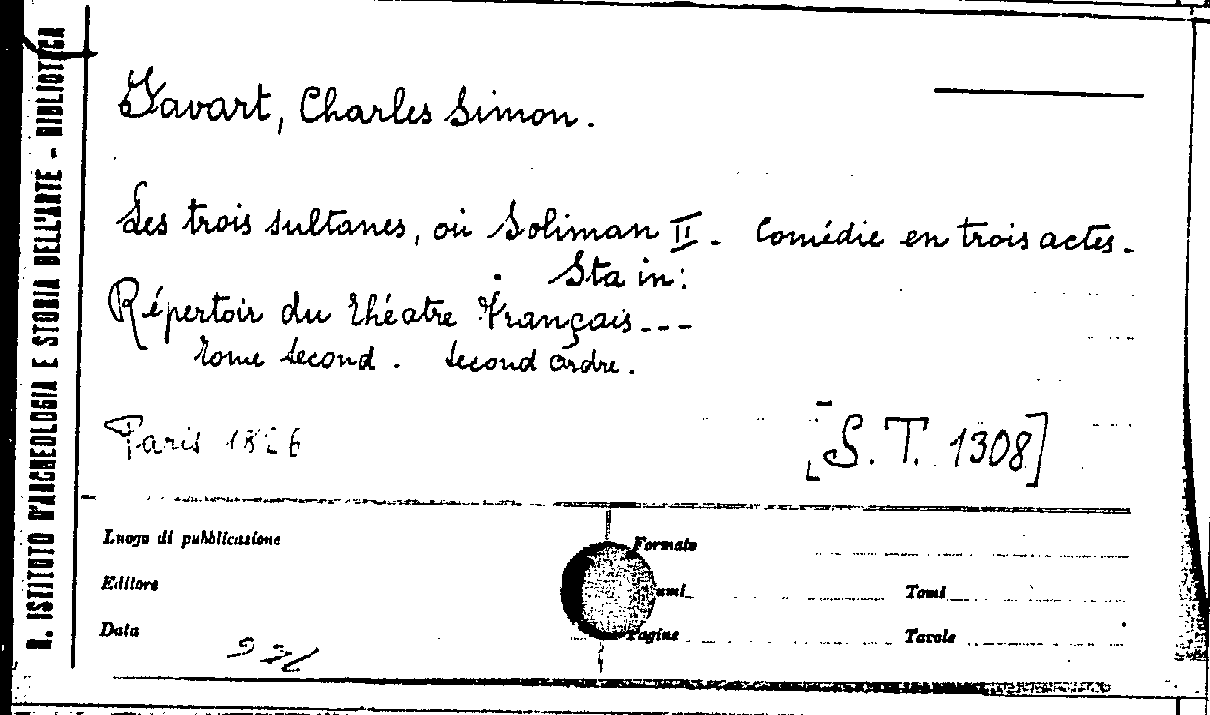 R. ISTITUTO D'ARCHEOLOGIA E STORIA DELL'ARTE - BIBLIOTECA
Favart, Charles Simon.
Les trois sultanes, ou Soliman II. Comédie en trois actes.
Sta in:
Répertoir du théatre Français---
tome second. second ordre.
Paris 1826
[S. T. 1308]
Luogo di pubblicazione
Formato
Editore
umi
Tomi
Data
Pagine
Tavole